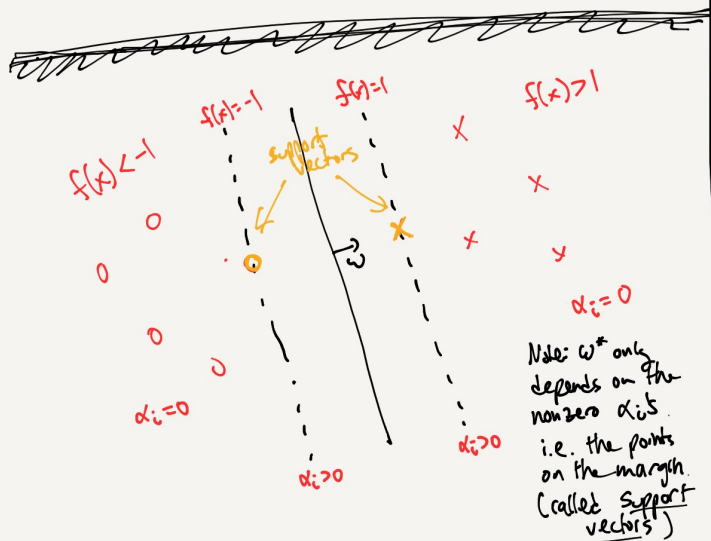 f(x)=-1
f(x)=1
f(x)>1
f(x)<-1
support
vectors
ω
αᵢ=0
αᵢ=0
αᵢ>0
αᵢ>0
Note: ω* only
depends on the
nonzero αᵢ's
i.e. the points
on the margin.
(called support
vectors)